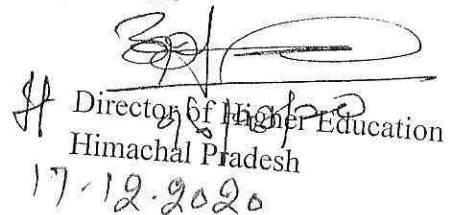 Director of Higher Education
Himachal Pradesh
17.12.2020